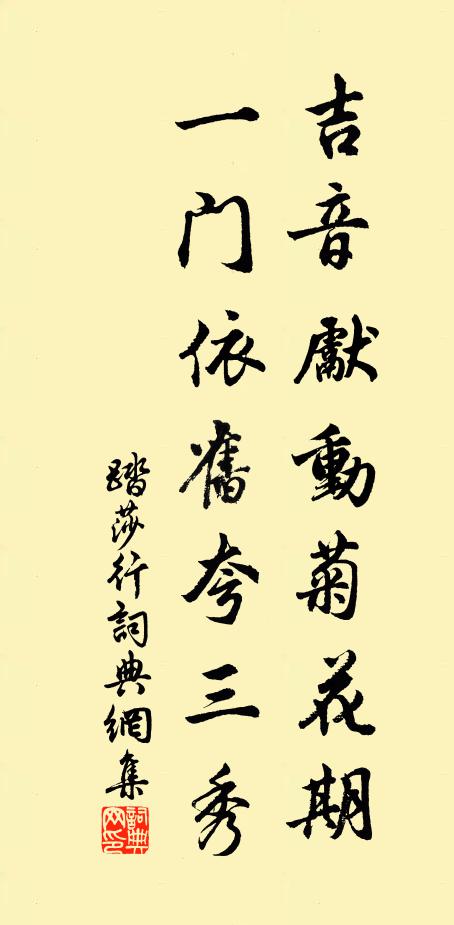 吉音獻動菊花期
一门依舊夸三秀
踏莎行詞典網集
詞典
网印